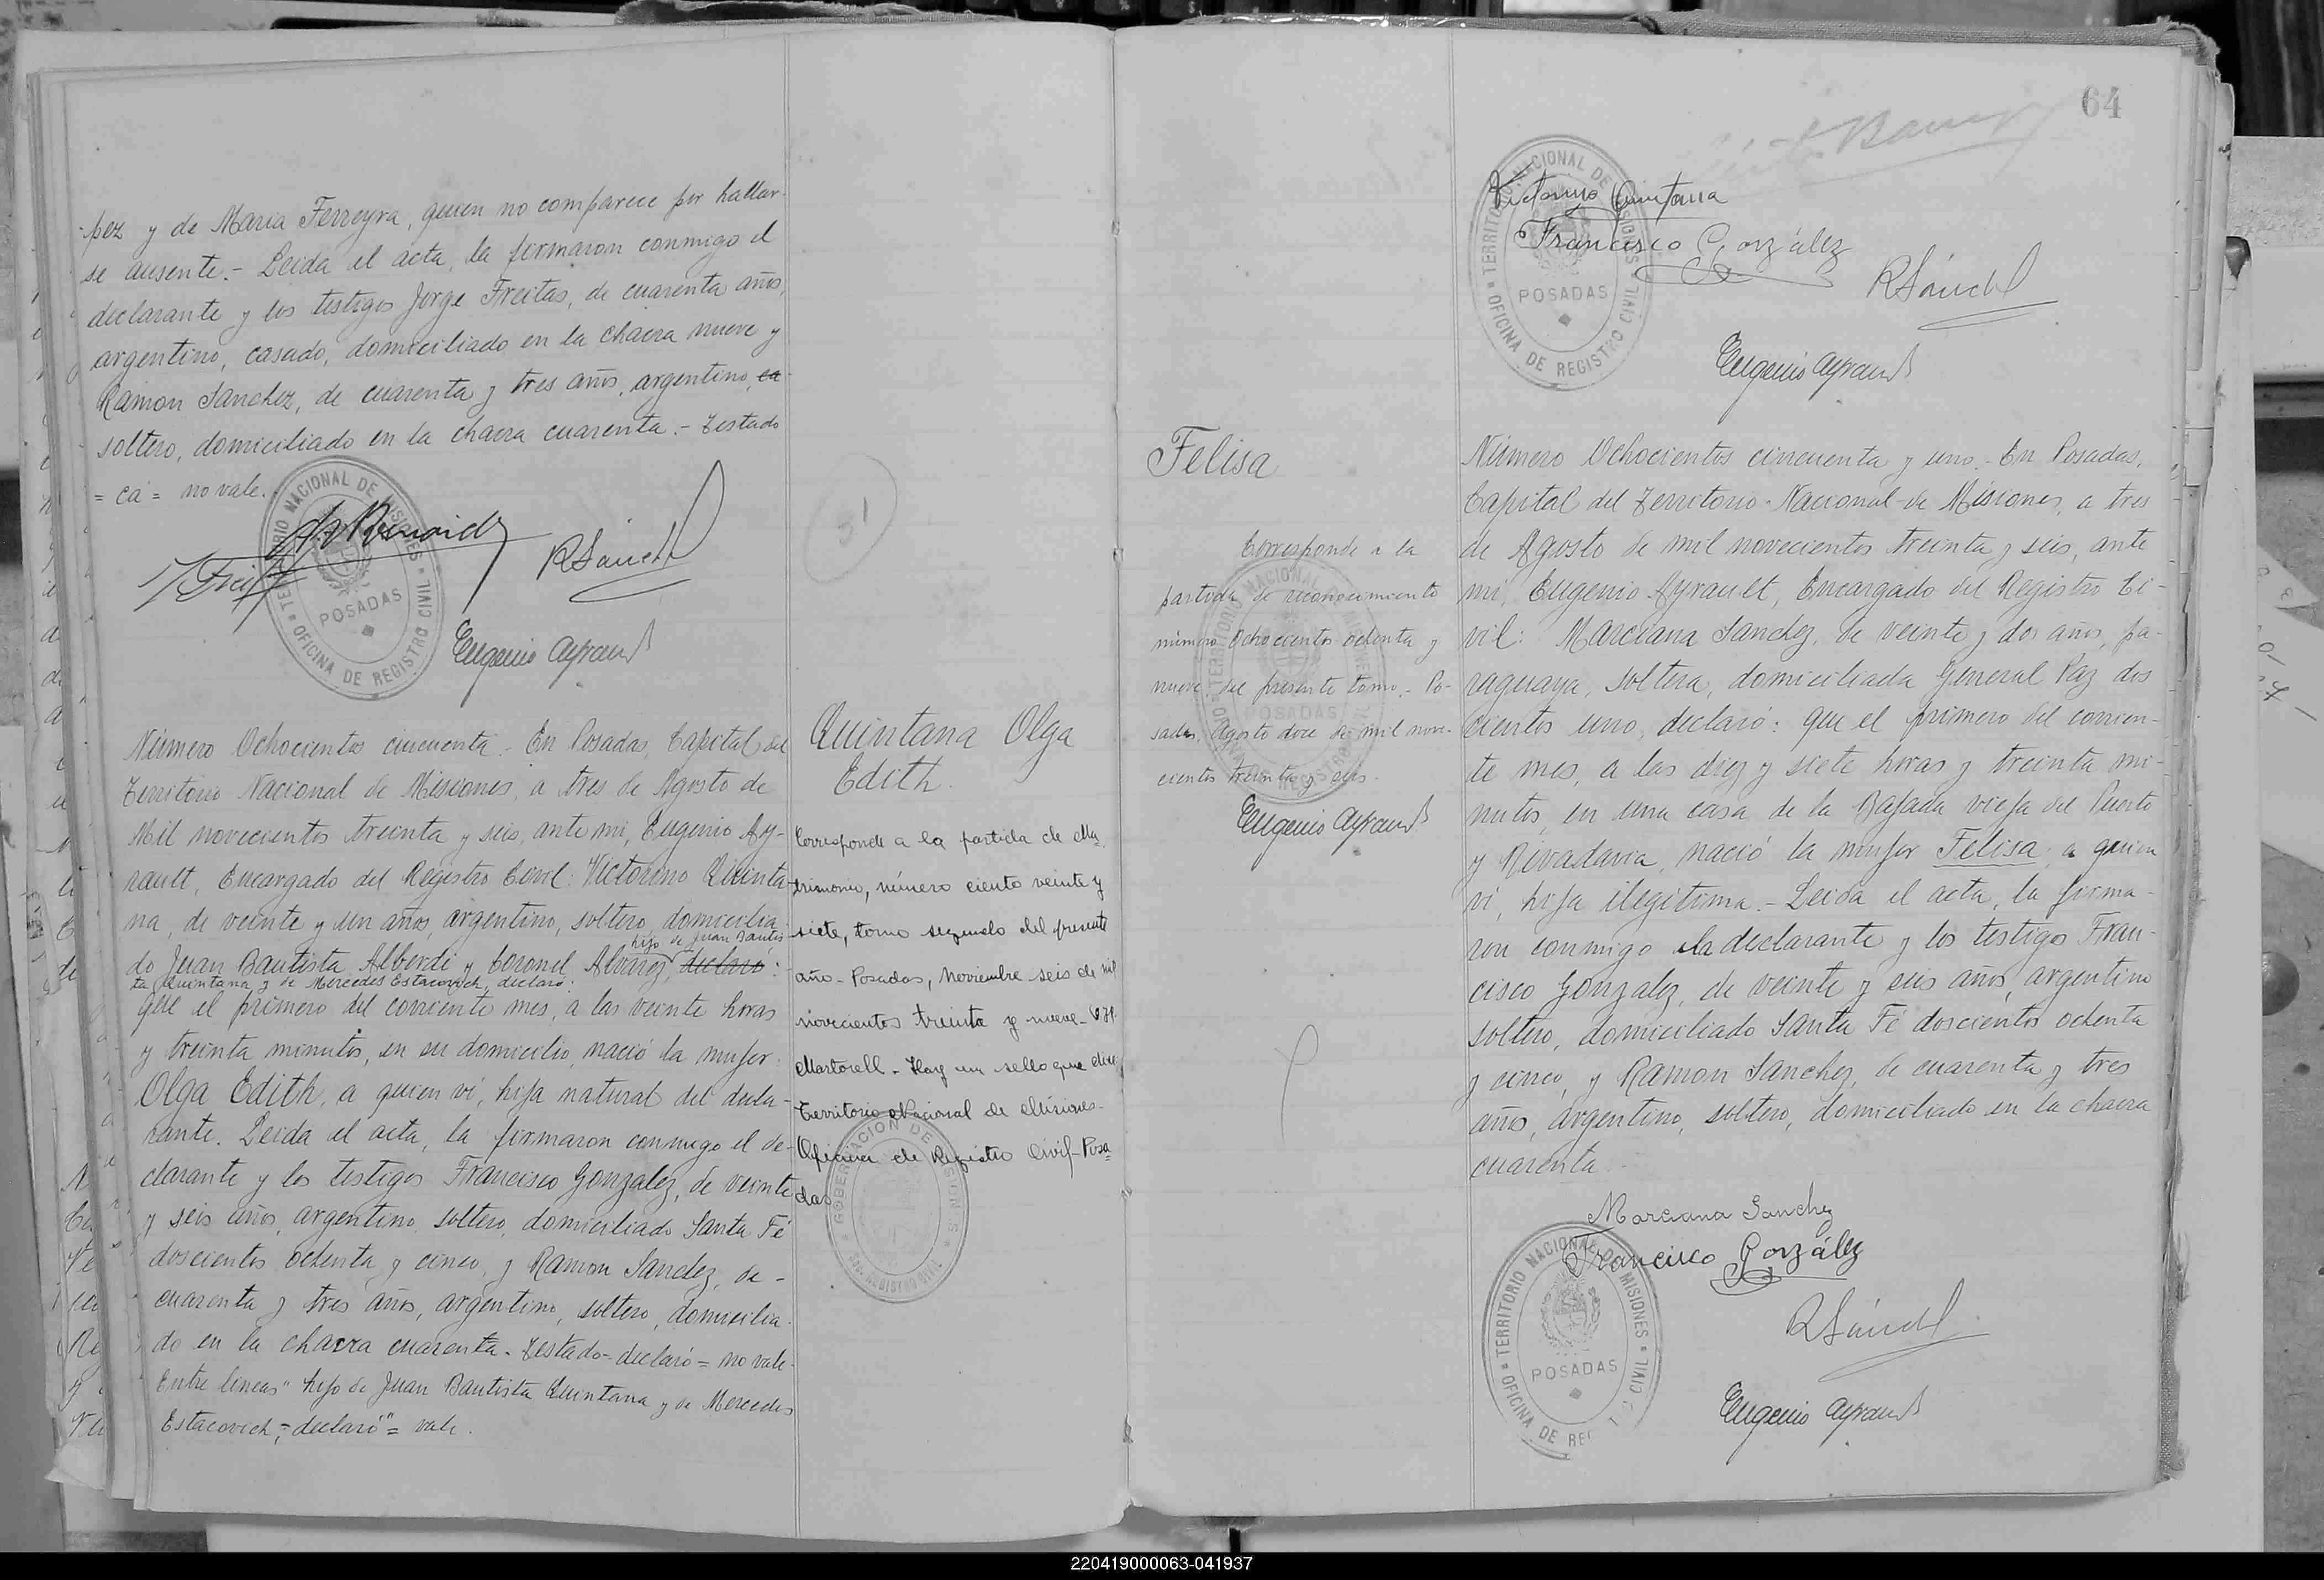 pez y de Maria Ferreyra, quien no comparece por hallar-
se ausente.- Leida el acta, la firmaron conmigo el
declarante y los testigos Jorge Freitas, de cuarenta años,
argentino, casado, domiciliado en la chacra nueve y
Ramon Sanchez, de cuarenta y tres años, argentino, ca
soltero, domiciliado en la chacra cuarenta.- Testado
= ca = no vale.
TERRITORIO NACIONAL DE MISIONES
POSADAS
OFICINA DE REGISTRO CIVIL
RSánchez
Eugenio Ayrault
Número Ochocientos cincuenta.- En Posadas, Capital del
Territorio Nacional de Misiones, a tres de Agosto de
Mil novecientos treinta y seis, ante mi, Eugenio Ay-
rault, Encargado del Registro Civil: Victorino Quinta-
na, de veinte y un años, argentino, soltero, domicilia-
hijo de Juan Bautis-
do Juan Bautista Alberdi y Coronel Alvarez, declaró:
ta Quintana y de Mercedes Estacovich, declaró:
que el primero del corriente mes, a las veinte horas
y treinta minutos, en su domicilio, nació la mujer
Olga Edith, a quien vi, hija natural del decla-
rante. Leida el acta, la firmaron conmigo el de-
clarante y los testigos Francisco Gonzalez, de veinte
y seis años, argentino, soltero, domiciliado Santa Fé
doscientos ochenta y cinco, y Ramon Sanchez, de -
cuarenta y tres años, argentino, soltero, domicilia-
do en la chacra cuarenta. Testado- declaró = no vale-
Entre lineas " hijo de Juan Bautista Quintana y de Mercedes
Estacovich,- declaró" = vale.
Quintana Olga
Edith.
Corresponde a la partida de Ma-
trimonio, número ciento veinte y
siete, tomo segundo del presente
año - Posadas, Noviembre seis de mil
novecientos treinta y nueve-
Martorell - Hay un sello que dice:
Territorio Nacional de Misiones-
Oficina de Registro Civil- Posa-
das
GOBERNACION DE MISIONES
64
Victorino Quintana
Francisco González
RSánchez
TERRITORIO NACIONAL DE MISIONES
POSADAS
OFICINA DE REGISTRO CIVIL
Eugenio Ayrault
Felisa
Corresponde a la
partida de reconocimiento
número Ochocientos ochenta y
nueve, del presente tomo.- Po-
sadas, Agosto doce de mil nove-
cientos treinta y seis.
TERRITORIO NACIONAL DE MISIONES
POSADAS
Eugenio Ayrault
Número Ochocientos cincuenta y uno.- En Posadas,
Capital del Territorio Nacional de Misiones, a tres
de Agosto de mil novecientos treinta y seis, ante
mi, Eugenio Ayrault, Encargado del Registro Ci-
vil: Marciana Sanchez, de veinte y dos años, pa-
raguaya, soltera, domiciliada General Paz dos
cientos uno, declaró: que el primero del corrien-
te mes, a las diez y siete horas y treinta mi-
nutos, en una casa de la Bajada vieja del Puerto
y Rivadavia, nació la mujer Felisa, a quien
vi, hija ilegitima.- Leida el acta, la firma-
ron conmigo la declarante y los testigos Fran-
cisco Gonzalez, de veinte y seis años, argentino
soltero, domiciliado Santa Fé doscientos ochenta
y cinco, y Ramon Sanchez, de cuarenta y tres
años, argentino, soltero, domiciliado en la chacra
cuarenta.-
Marciana Sanchez
Francisco González
RSánchez
TERRITORIO NACIONAL DE MISIONES
POSADAS
Eugenio Ayrault
220419000063-041937